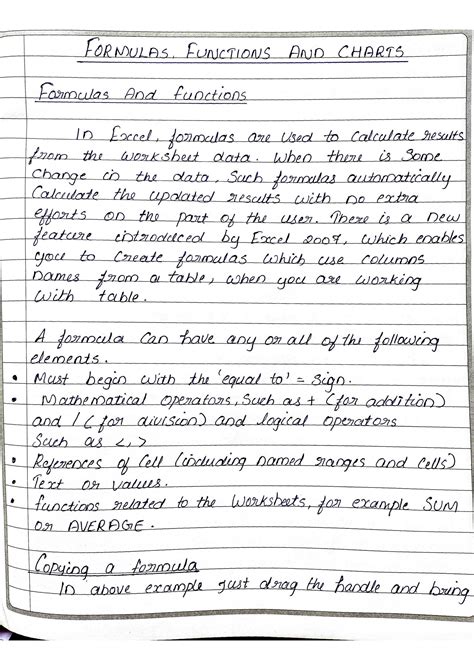 FORMULAS, FUNCTIONS AND CHARTS
Formulas And functions
In Excel, formulas are used to calculate results
from the worksheet data. When there is some
change in the data, such formulas automatically
calculate the updated results with no extra
efforts on the part of the user. There is a new
feature introduced by Excel 2007, which enables
you to create formulas which use columns
names from a table, when you are working
with table.
A formula can have any or all of the following
elements.
• Must begin with the 'equal to' = sign.
• Mathematical operators, such as + (for addition)
and / (for division) and logical operators
such as <, >
• References of cell (including named ranges and cells)
• Text or values.
• functions related to the worksheets, for example SUM
or AVERAGE.
Copying a formula
In above example just drag the handle and bring